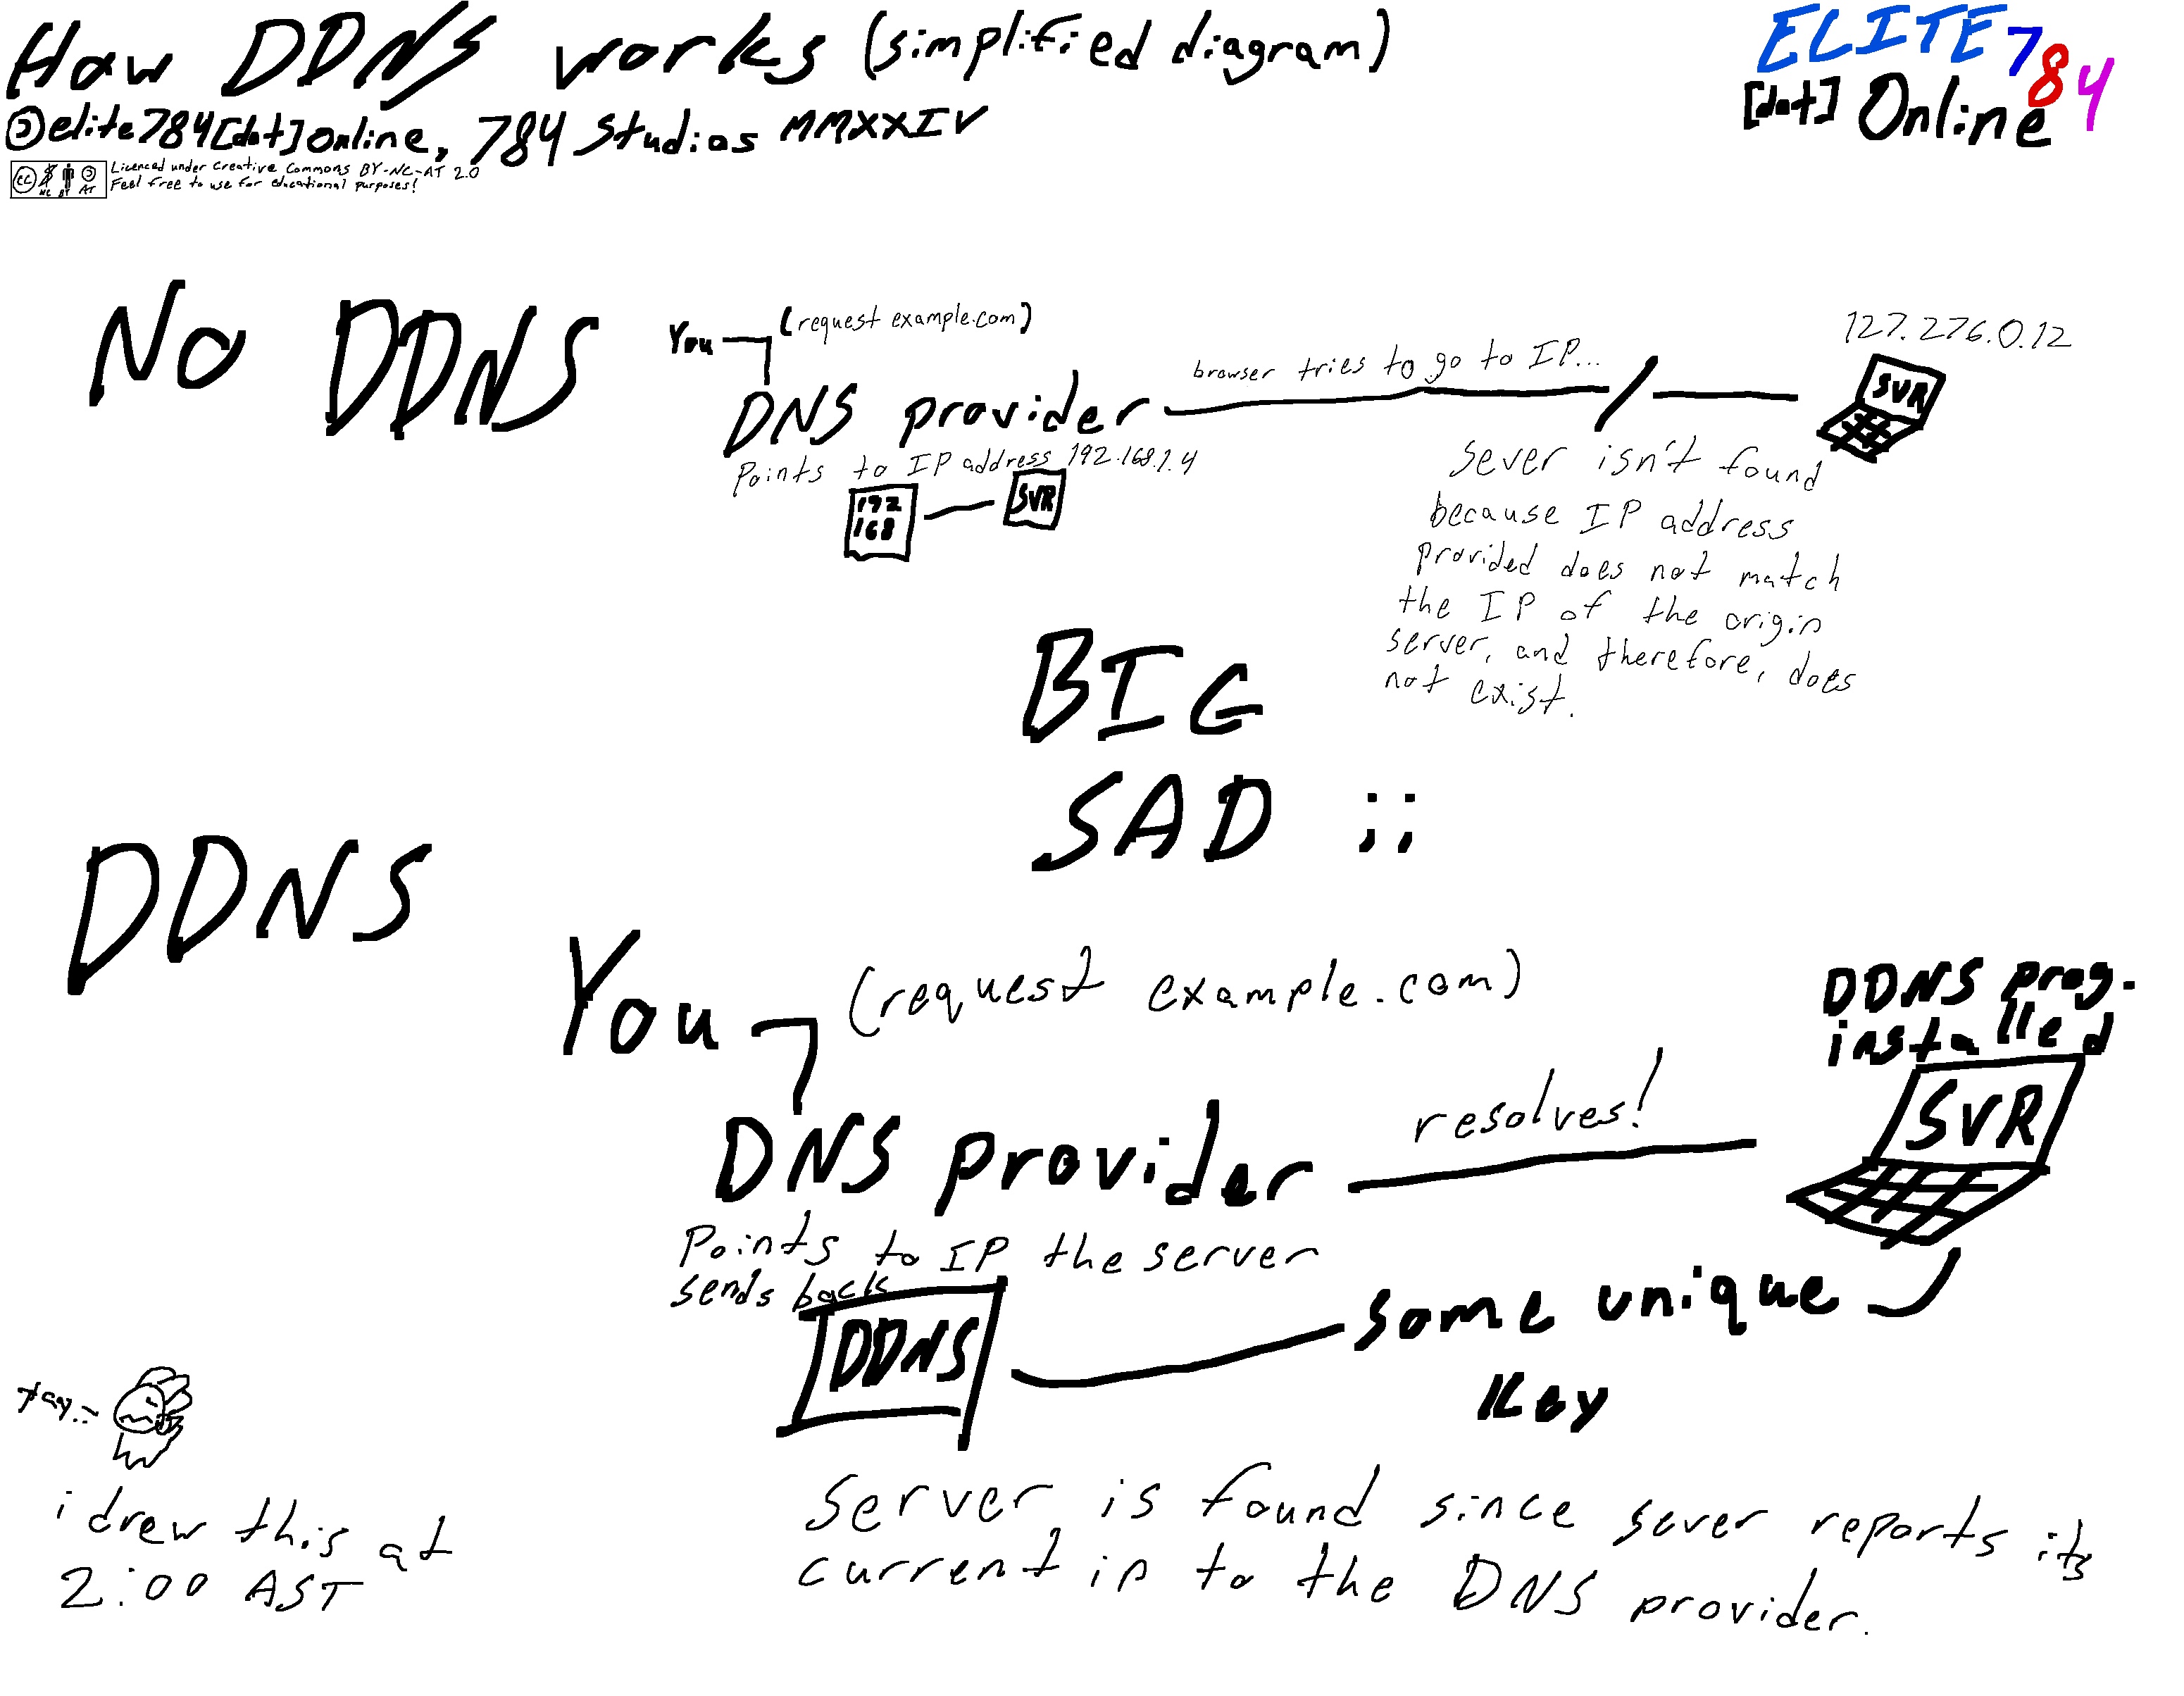 How DDNS works (simplified diagram)
©elite784[dot]online, 784 Studios MMXXIV
Licenced under Creative Commons BY-NC-AT 2.0
Feel free to use for educational purposes!
cc NC BY AT
ELITE784
[dot] Online
No DDNS
You
(request example.com)
DNS provider
Points to IP address 192.168.1.4
192
168
SVR
browser tries to go to IP...
127.276.0.12
SVR
Sever isn't found
because IP address
provided does not match
the IP of the origin
server, and therefore, does
not exist.
BIG
SAD ;;
DDNS
You
(request example.com)
DNS provider
Points to IP the server
sends back
DDNS
resolves!
DDNS prog.
installed
SVR
some unique
Key
server is found since sever reports its
current ip to the DNS provider.
i drew this at
2:00 AST